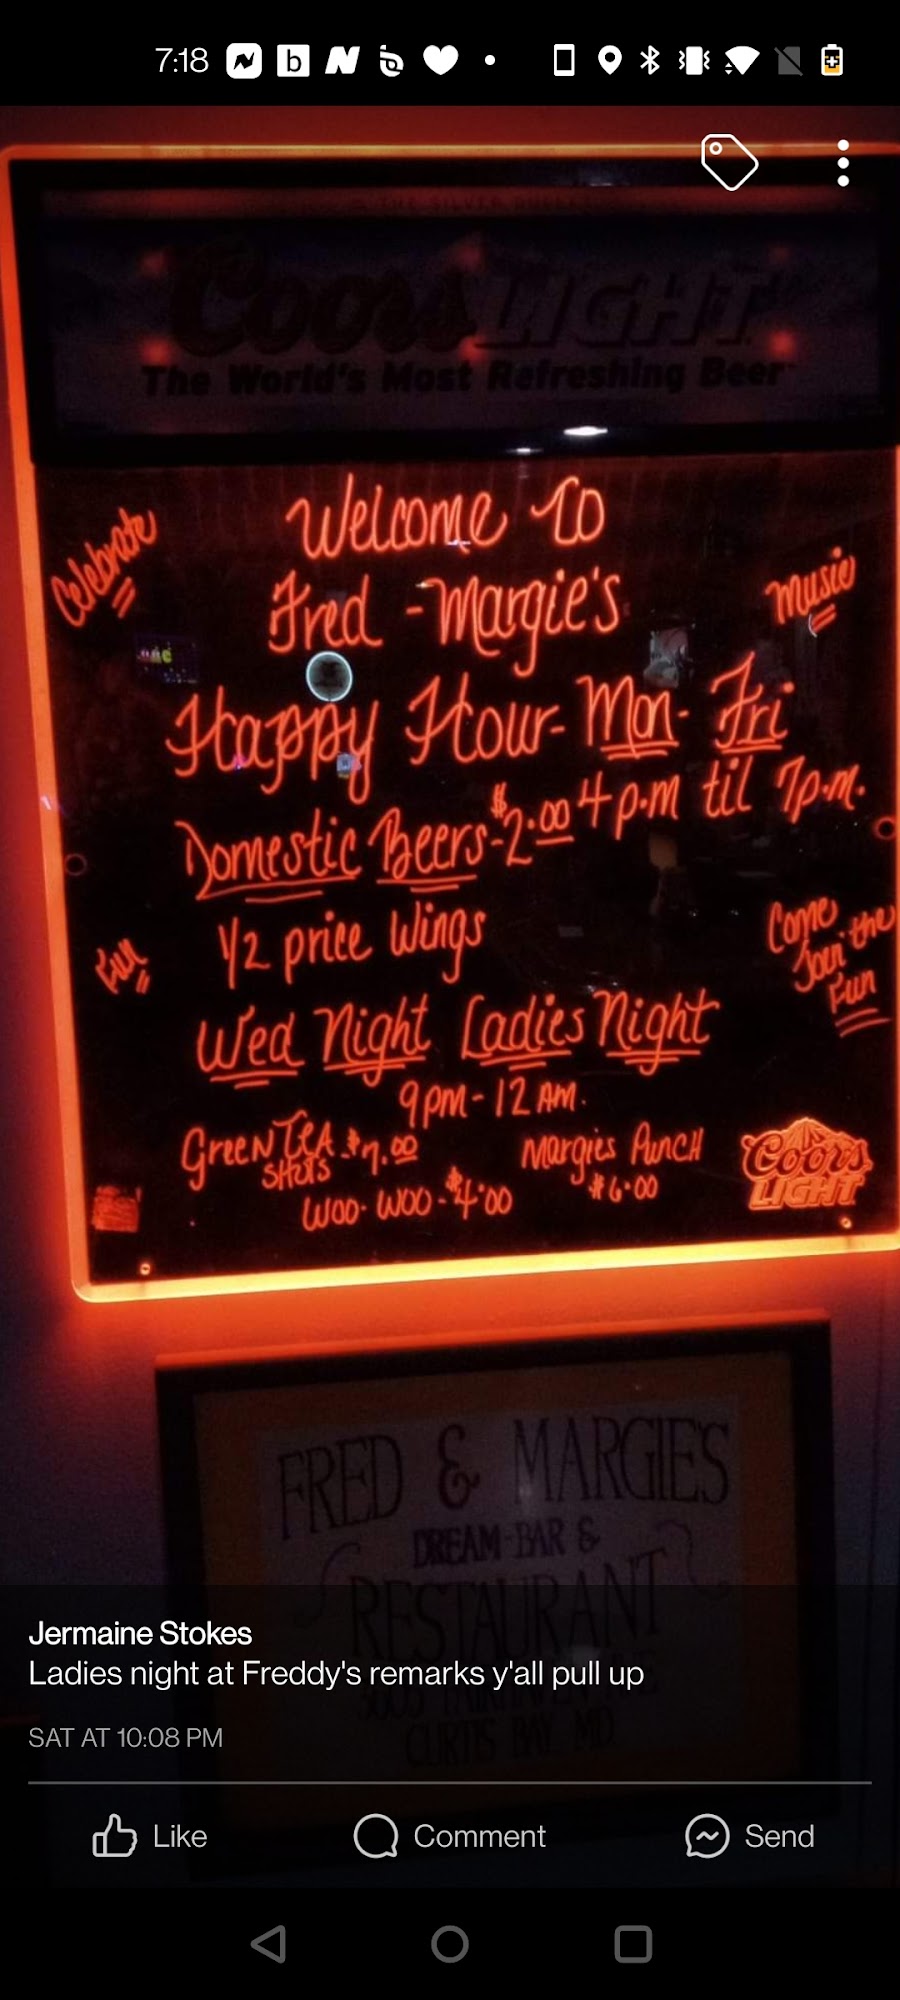 7:18
THE SILVER BULLET
Coors LIGHT
The World's Most Refreshing Beer
Welcome To
Celebrate
Music
Fred - Margie's
Happy Hour - Mon - Fri
Domestic Beers - $2.00 4 p.m til 7p.m.
1/2 price Wings
Come
Join the
Fun
Wed Night Ladies Night
9pm - 12 AM.
Green Tea $7.00
Shots
Margies Punch
$6.00
Woo-Woo - $4.00
Coors
LIGHT
FRED & MARGIE'S
DREAM-BAR &
RESTAURANT
CURTIS BAY MD
Jermaine Stokes
Ladies night at Freddy's remarks y'all pull up
SAT AT 10:08 PM
Like
Comment
Send